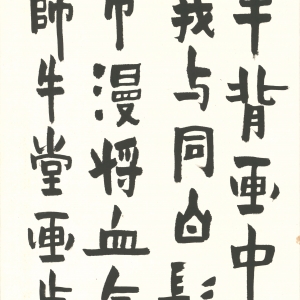 牛背画中
我与同白
漫将血
師牛堂画